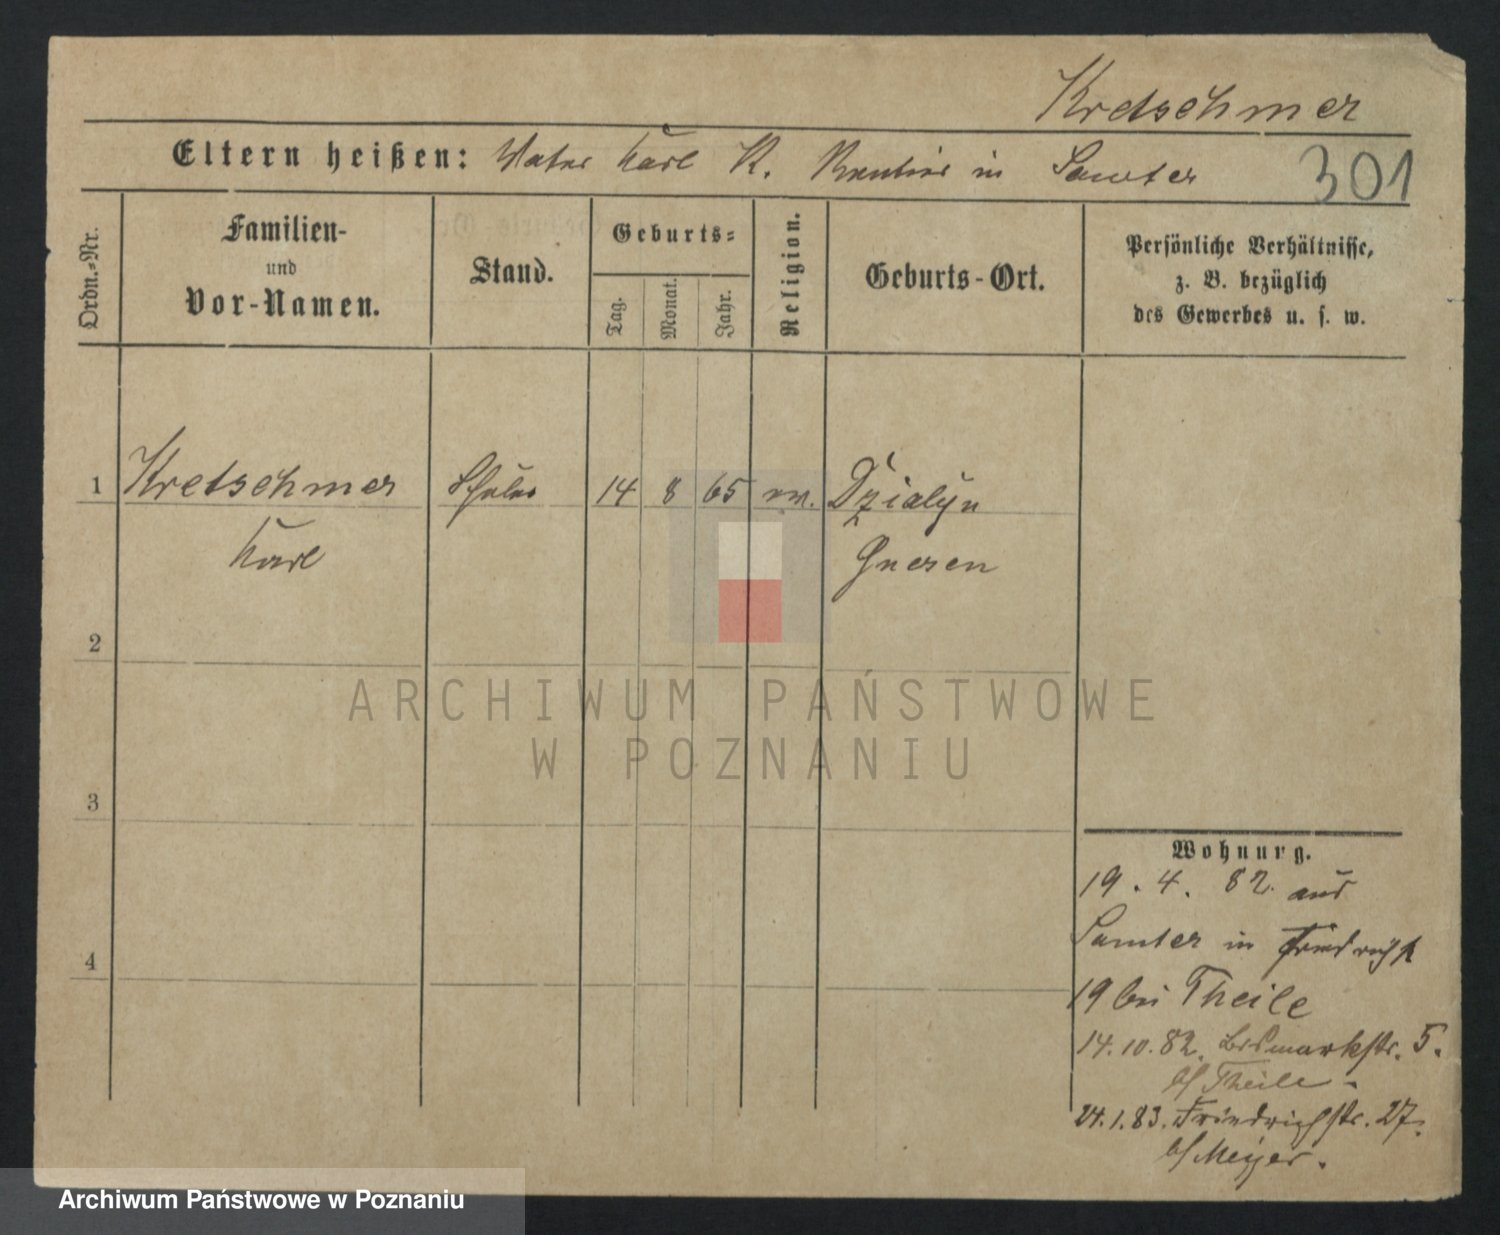 Kretschmer
Eltern heißen: Vater Karl K. Rentier in Samter 301
Ordn.-Nr.
Familien-
und
Vor-Namen.
Stand.
Geburts-
Tag.
Monat.
Jahr.
Religion.
Geburts-Ort.
Persönliche Verhältnisse,
z. B. bezüglich
des Gewerbes u. s. w.
1 Kretschmer Schüler 14 8 65 ev. Dzialyn
Karl Gnesen
2
3
4
Wohnung.
19. 4. 82 aus
Samter in Friedrichst
19 bei Theile
14.10.82. Bismarkstr. 5.
b/ Theile.
24.1.83. Friedrichstr. 27.
b/ Meyer.
ARCHIWUM PAŃSTWOWE
W POZNANIU
Archiwum Państwowe w Poznaniu